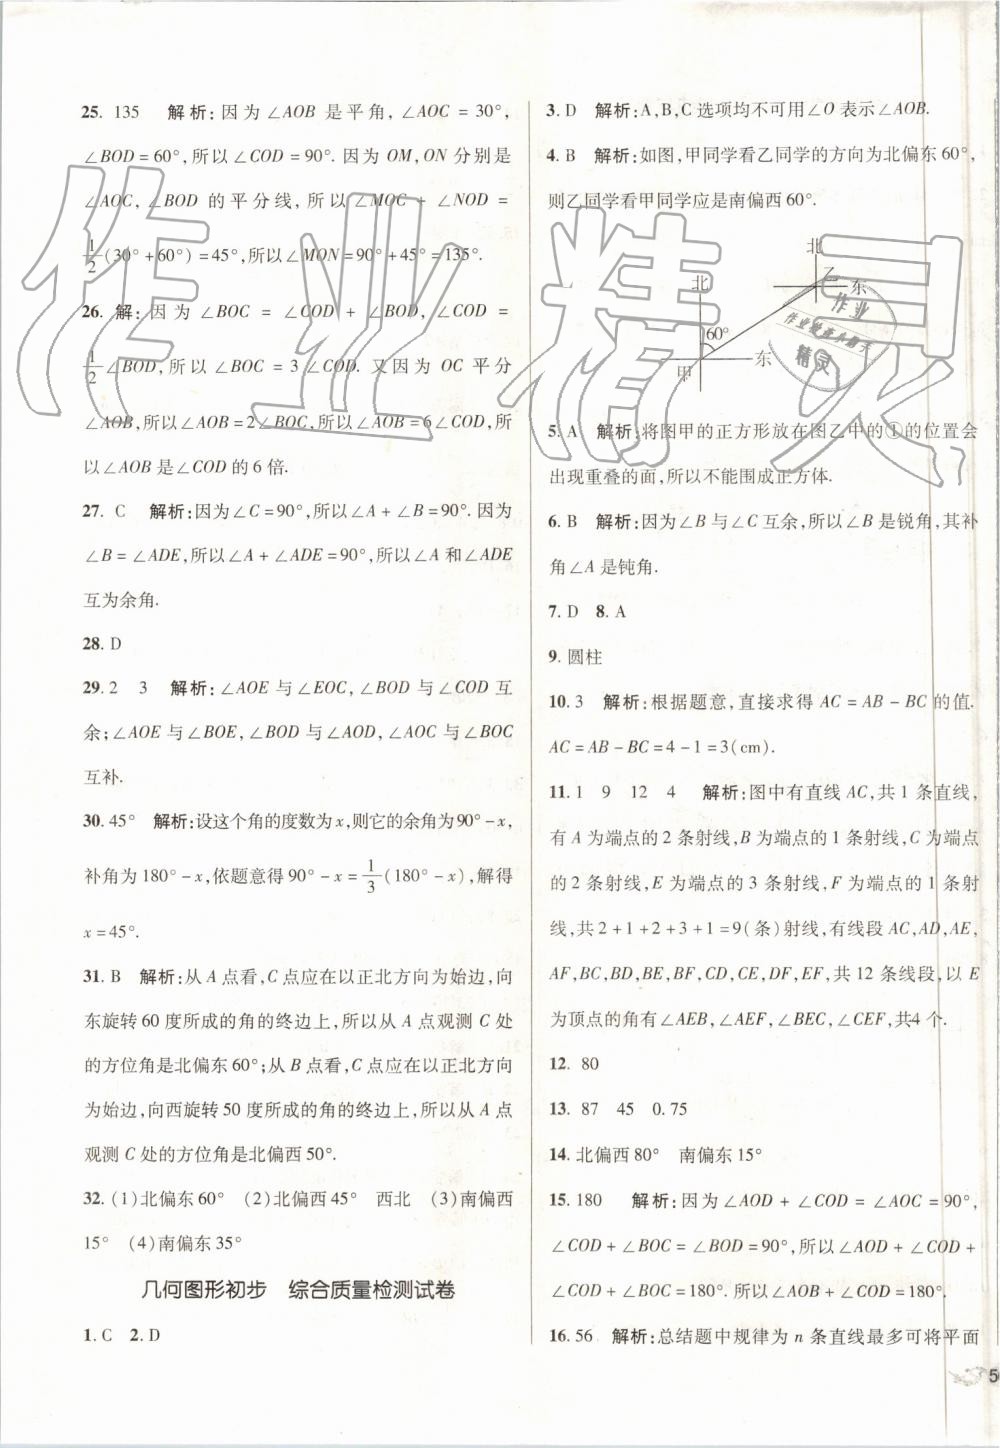 25. 135　解析:因为∠AOB 是平角,∠AOC=30°,
∠BOD=60°,所以∠COD=90°.因为 OM,ON 分别是
∠AOC,∠BOD 的平分线,所以∠MOC+∠NOD=
1/2(30°+60°)=45°,所以∠MON=90°+45°=135°.
26. 解:因为∠BOC=∠COD+∠BOD,∠COD=
1/2∠BOD,所以∠BOC=3∠COD.又因为 OC 平分
∠AOB,所以∠AOB=2∠BOC,所以∠AOB=6∠COD,所
以∠AOB 是∠COD 的 6 倍.
27. C　解析:因为∠C=90°,所以∠A+∠B=90°.因为
∠B=∠ADE,所以∠A+∠ADE=90°,所以∠A 和∠ADE
互为余角.
28. D
29. 2　3　解析:∠AOE 与∠EOC,∠BOD 与∠COD 互
余;∠AOE 与∠BOE,∠BOD 与∠AOD,∠AOC 与∠BOC
互补.
30. 45°　解析:设这个角的度数为 x,则它的余角为 90°-x,
补角为 180°-x,依题意得 90°-x=1/3(180°-x),解得
x=45°.
31. B　解析:从 A 点看,C 点应在以正北方向为始边,向
东旋转 60 度所成的角的终边上,所以从 A 点观测 C 处
的方位角是北偏东 60°;从 B 点看,C 点应在以正北方向
为始边,向西旋转 50 度所成的角的终边上,所以从 A 点
观测 C 处的方位角是北偏西 50°.
32. (1)北偏东 60°　(2)北偏西 45°　西北　(3)南偏西
15°　(4)南偏东 35°
几何图形初步　综合质量检测试卷
1. C　2. D
3. D　解析:A,B,C 选项均不可用∠O 表示∠AOB.
4. B　解析:如图,甲同学看乙同学的方向为北偏东 60°,
则乙同学看甲同学应是南偏西 60°.
北
乙
东
北
60°
甲
东
5. A　解析:将图甲的正方形放在图乙中的①的位置会
出现重叠的面,所以不能围成正方体.
6. B　解析:因为∠B 与∠C 互余,所以∠B 是锐角,其补
角∠A 是钝角.
7. D　8. A
9. 圆柱
10. 3　解析:根据题意,直接求得 AC=AB-BC 的值.
AC=AB-BC=4-1=3(cm).
11. 1　9　12　4　解析:图中有直线 AC,共 1 条直线,
有 A 为端点的 2 条射线,B 为端点的 1 条射线,C 为端点
的 2 条射线,E 为端点的 3 条射线,F 为端点的 1 条射
线,共 2+1+2+3+1=9(条)射线,有线段 AC,AD,AE,
AF,BC,BD,BE,BF,CD,CE,DF,EF,共 12 条线段,以 E
为顶点的角有∠AEB,∠AEF,∠BEC,∠CEF,共4 个.
12. 80
13. 87　45　0.75
14. 北偏西 80°　南偏东 15°
15. 180　解析:因为∠AOD+∠COD=∠AOC=90°,
∠COD+∠BOC=∠BOD=90°,所以∠AOD+∠COD+
∠COD+∠BOC=180°.所以∠AOB+∠COD=180°.
16. 56　解析:总结题中规律为 n 条直线最多可将平面
作业精灵
作业
作业检查小助手
精灵